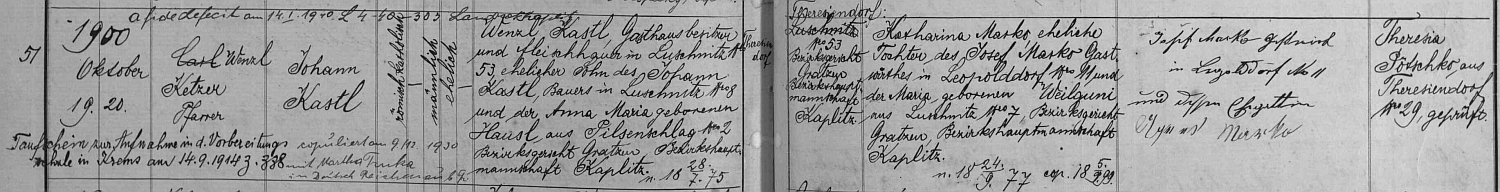 a fide defecit am 14.I.1940 Z 4-40-303
51
1900
Oktober
19. 20.
Wenzl
Ketzer
Pfarrer
Johann
Kastl
römisch katholisch
männlich
ehelich
Wenzl Kastl, Gasthausbesitzer
und Fleischhauer in Luschnitz Nro
53, ehelicher Sohn des Johann
Kastl, Bauers in Luschnitz Nro 8
und der Anna Maria geborenen
Hausl aus Pilsenschlag Nro 2
Bezirksgericht Gratzen Bezirkshaupt-
mannschaft Kaplitz.
n. 18 28./7. 75
Taufschein zur Aufnahme in d. Vorbereitungs
schule in Krems am 14.9.1914 Z. 338
copuliert am 9/ 1930
mit Martha
in Deutsch Reichenau b. G.
Theresiendorf
Theresiendorf:
Luschnitz
Nro 53
Bezirksgericht
Gratzen
Bezirkshaupt-
mannschaft
Kaplitz.
Katharina Marko eheliche
Tochter des Josef Marko Gast-
wirthes in Leopolddorf Nro 11 und
der Maria, geborenen Weilguni
aus Luschnitz Nro 7, Bezirksgericht
Gratzen, Bezirkshauptmannschaft
Kaplitz.
n. 18 24./9. 77 cop. 18 5./9. 99.
Josef Marko Gastwirth
in Leopolddorf No 11
und dessen Ehegattin
Agnes Marko
Theresia
Pötschko, aus
Theresiendorf
Nro 29, geprüft.